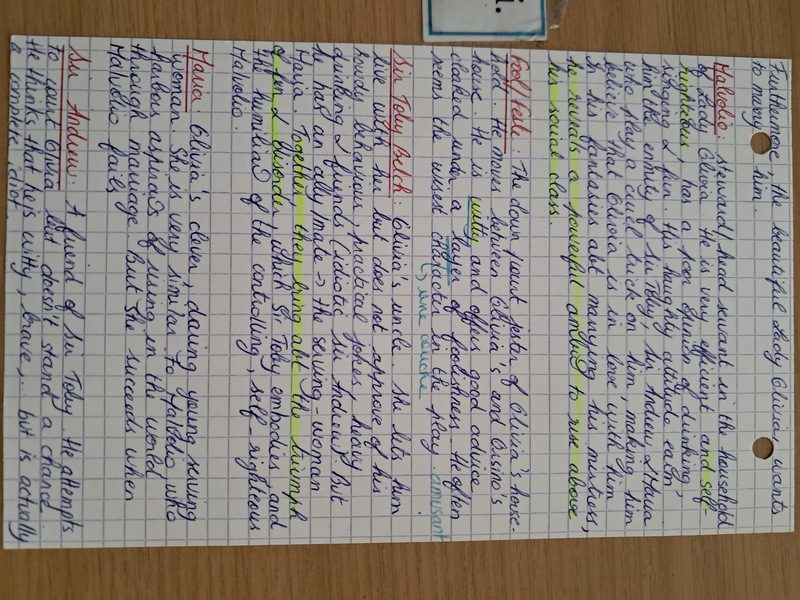 Furthermore, the beautiful Lady Olivia wants
to marry him.
Malvolio: steward/head servant in the household
of Lady Olivia. He is very efficient and self-
righteous, has a poor opinion of drinking,
singing & fun. His haughty attitude earn
him the enmity of Sir Toby, Sir Andrew & Maria
who play a cruel trick on him, making him
believe that Olivia is in love with him
In his fantasies abt marrying his mistress,
he reveals a powerful ambit° to rise above
his social class.
Fool/Feste: The clown/court jester of Olivia's house-
hold. He moves between Olivia's and Orsino's
house. He is witty and offers good advice
cloaked under a layer of foolishness. He often
seems the wisest character in the play. amusant
↳ une couche
Sir Toby Belch: Olivia's uncle. She lets him
live with her but does not approve of his
rowdy behaviour, practical jokes, heavy
drinking & friends (idiotic Sir Andrew). But
he has an ally/mate → the serving-woman
Maria. Together they bring abt the triumph
of fun & disorder which Sir Toby embodies and
the humiliat° of the controlling, self-righteous
Malvolio.
Maria: Olivia's clever, daring young serving
woman. She is very similar to Malvolio who
harbors aspirat°s of rising in the world
through marriage. But she succeeds when
Malvolio fails.
Sir Andrew: A friend of Sir Toby. He attempts
to court Olivia but doesn't stand a chance.
He thinks that he's witty, brave,... but is actually
a complete idiot.